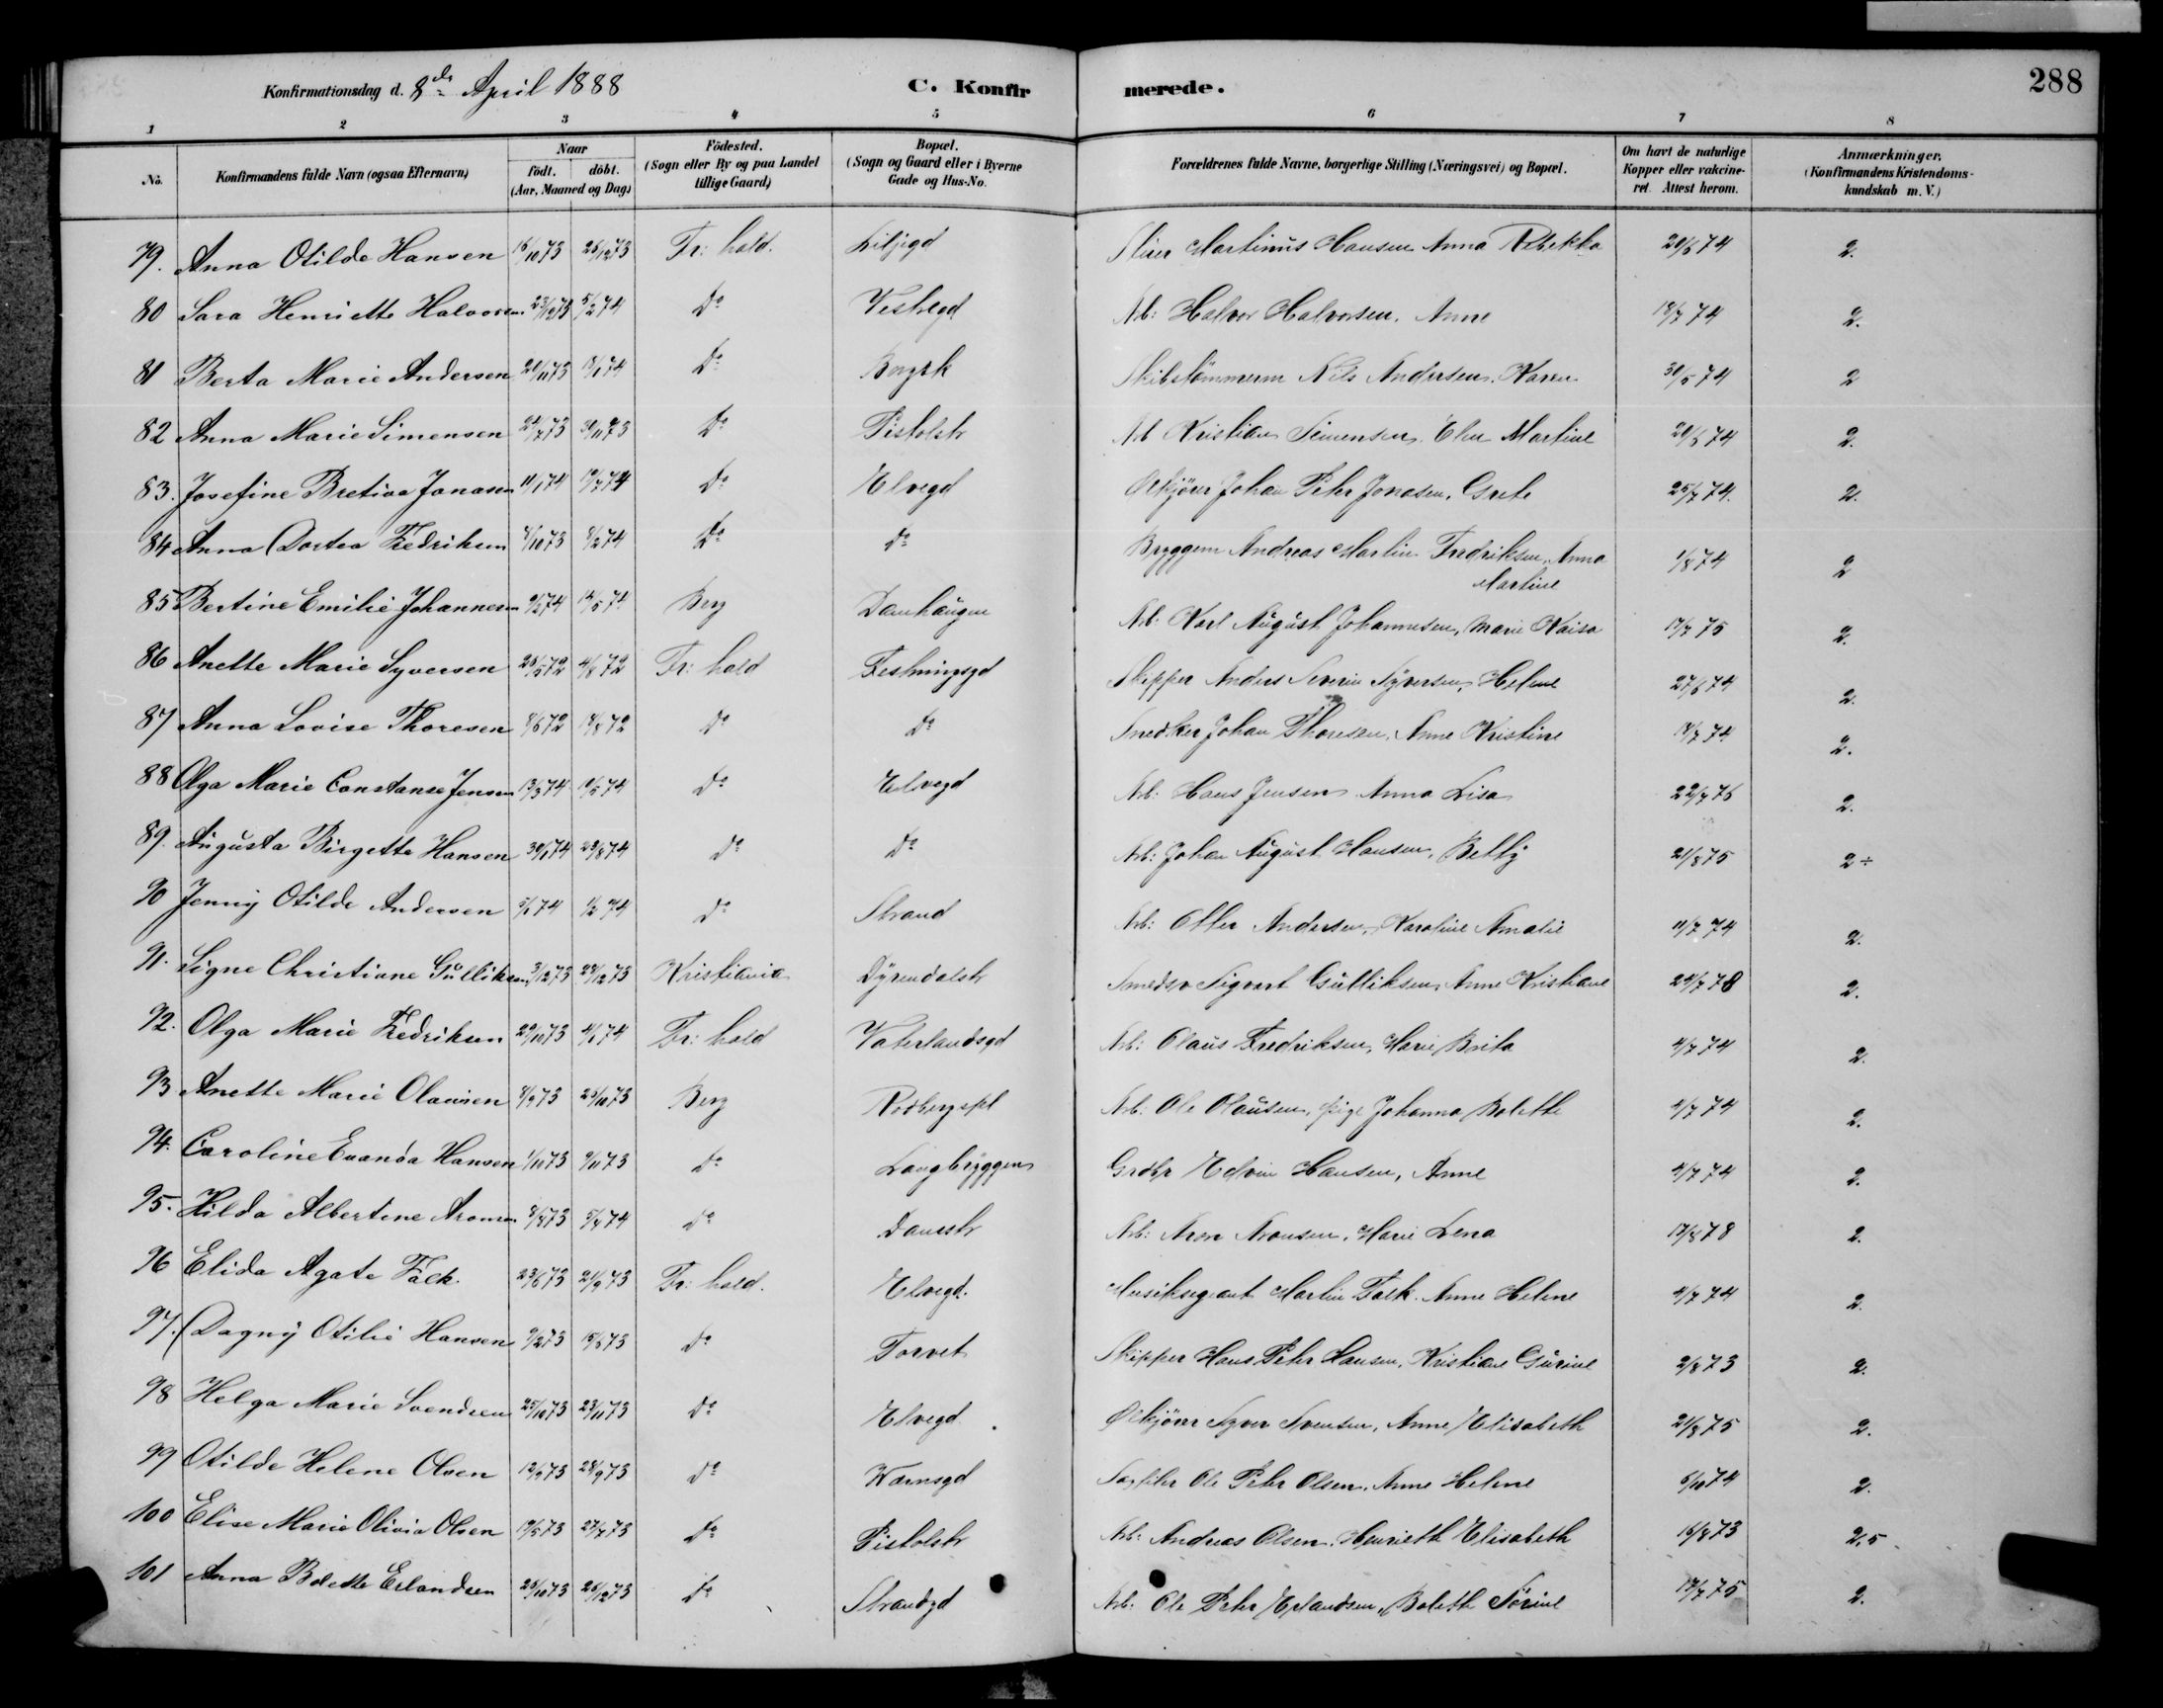 Konfirmationsdag d. 8de April 1888 C. Konfirmerede. 288
1 2 3 4 5 6 7 8
No. Konfirmandens fulde Navn (ogsaa Efternavn) Naar födt. döbt. (Aar, Maaned og Dag) Födested. (Sogn eller By og paa Landet tillige Gaard) Bopæl. (Sogn og Gaard eller i Byerne Gade og Hus-No. Forældrenes fulde Navne, borgerlige Stilling (Næringsvei) og Bopæl. Om havt de naturlige Kopper eller vakcineret. Attest herom. Anmærkninger. (Konfirmandens Kristendomskundskab m. V.)
79. Anna Otilde Hansen 16/10 73 26/12 73 Fr: hald. Liljegd Martinus Hansen Anna Rebekka 20/6 74 2.
80 Sara Henriette Halvorsen 23/12 73 5/2 74 Do Vestregd Arb: Halvor Halvorsen. Anne 18/7 74 2.
81 Berta Marie Andersen 20/11 73 Do Skibstömmerm Nils Andersen. Karen 30/5 74 2
82 Anna Marie Simensen 30/11 73 Do Pistolstr Arb Kristian Simensen. Martine 20/6 74 2.
83. Josefine Bretine Jonasen 11/1 74 Do Elvegd Ölkjörer Johan Peter Jonasen, Grete 25/7 74. 2.
84 Anna Dortea Fredriksen 8/10 73 8/2 74 Do Do Bryggem Andreas Martin Fredriksen, Anna Martine 1/8 74 2
85 Bertine Emilie Johannesen 9/2 74 Berg Damhaugen Arb: Karl August Johannesen, Marie Kaisa 17/7 75 2.
86 Anette Marie Syversen 4/8 72 Fr: hald Festningsgd Skipper Anders Severin Syversen, Helene 27/6 74 2.
87 Anna Lovise Thoresen 8/6 72 18/8 72 Do Do Snedker Johan Thoresen. Anne Kristine 2.
88 Olga Marie Constanse Jensen 13/3 74 Do Elvegd Arb: Hans Jensen Anna Lisa 22/7 76 2.
89. Augusta Birgette Hansen 30/1 74 23/8 74 Do Do Arb: Johan August Hansen, Betty 21/8 75 2÷
90 Jenny Otilde Andersen 74 74 Do Strand Arb: Andersen, Karoline Amalie 11/7 74 2.
91. Signe Christiane Gulliksen 3/12 73 28/12 73 Kristiania Dyrendalstr Smedsv Sigvart Gulliksen, Anne Kristiane 24/7 78 2.
92. Olga Marie Fredriksen 29/10 73 4/1 74 Fr: hald Vaterlandsgd Arb: Olaus Fredriksen, Marie Brita 4/7 74 2.
93 Anette Marie Olausen 8/9 73 25/10 73 Berg Rödbergspl Arb: Ole Olausen, pige Johanna Bolette 4/7 74 2.
94. Caroline Evanda Hansen 1/10 73 9/11 73 Do Langbryggen Edvin Hansen, Anne 4/7 74 2.
95. Hilda Albertine Aronsen 8/8 73 Do Damstr Arb: Aron Aronsen, Marie Lena 17/8 78 2.
96 Elida Agate Falk. 23/6 73 21/9 73 Fr: hald. Elvegd. Martin Falk. Anne Helene 4/7 74 2.
97. Dagny Otilie Hansen 9/2 73 15/6 73 Do Torvet Skipper Hans Peter Hansen, Kristiane Gurine 2/8 73 2.
98 Helga Marie Svendsen 25/10 73 23/11 73 Do Elvegd. Ölkjörer Syver Svensen, Anne Elisabeth 21/8 75 2.
99 Otilde Helene Olsen 12/9 73 28/9 73 Do Værnsgd Ole Peter Olsen, Anne Helene 6/10 74 2.
100 Elise Marie Olivia Olsen 19/5 73 27/7 73 Do Pistolstr Arb: Andreas Olsen. Henriette Elisabeth 16/8 73 2,5
101 Anna Bolette Erlandsen 25/10 73 26/12 73 Do Strandgd Arb. Ole Peter Erlandsen, Bolette Sörine 17/7 75 2.